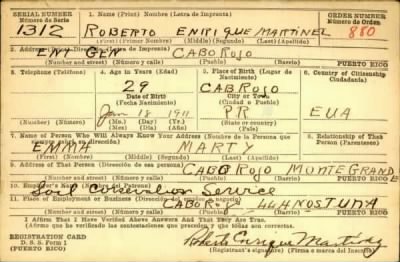 SERIAL NUMBER
Número de Serie
1312
1. Name (Print) Nombre (Letra de Imprenta)
ROBERTO ENRIQUE MARTINEZ
(First) (Primer Nombre) (Middle) (Segundo) (Last) (Apellido)
ORDER NUMBER
Número de Orden
880
2. Address (Print) Dirección (Letra de Imprenta)
ENT GEN CABO ROJO
PUERTO RICO
(Number and street) (Número y calle) (Town) (Pueblo)
3. Telephone (Teléfono)
4. Age in Years (Edad)
29
Date of Birth
(Fecha Nacimiento)
Jan 18 1911
(Mo.) (Day) (Yr.)
(Mes) (Día) (Año)
5. Place of Birth (Lugar de Nacimiento)
CAB ROJO
City or Town
(Ciudad o Pueblo)
PR
State or country
(Estado o país)
6. Country of Citizenship
Ciudadanía)
EUA
7. Name of Person Who Will Always Know Your Address (Nombre de la Persona que
EMMA MARTY
(First) (Nombre) (Middle) (Segundo) (Last) (Apellido)
8. Relationship of That
Person (Parentesco)
9. Address of That Person (Dirección de esa persona)
CABO ROJO MONTE GRANDE
(Number and street) (Número y calle) (Town) (Pueblo)
PUERTO RICO
10. Employer's Name (Nombre del Patrono)
Soil Service
11. Place of Employment or Business (Dirección del empleo o negocio)
CABO ROJO LLANOS TUNA
(Number and street) (Número y calle) (Town) (Pueblo)
PUERTO RICO
I Affirm That I Have Verified Above Answers and That They Are True.
(Afirmo que he verificado las contestaciones que preceden y que todas son correctas.)
REGISTRATION CARD
D. S. S. Form 1
(PUERTO RICO)
Roberto Enrique Martínez
(Registrant's signature) (Firma del registrado)